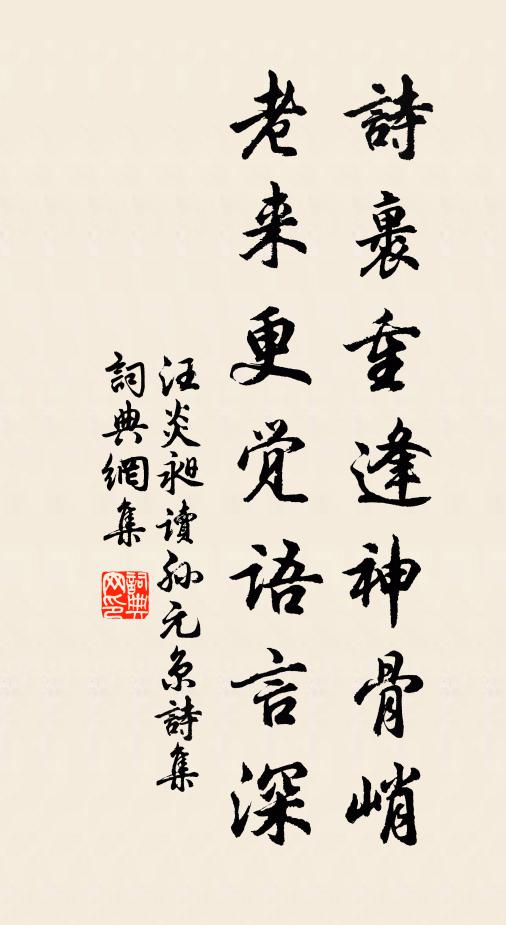 詩裏重逢神骨峭
老来更觉語言深
汪炎昶读孙元京詩集
詞典網集
詞典网印